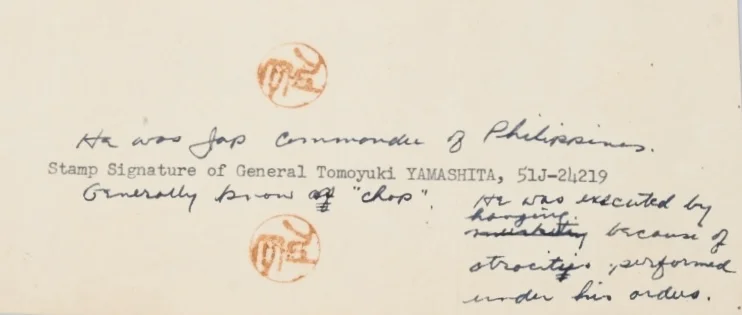 He was Jap Commander of Philippines.
Stamp Signature of General Tomoyuki YAMASHITA, 51J-24219
Generally know as "chop".
He was executed by
hanging.
because of
atrocities performed
under his orders.